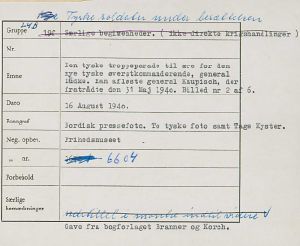 Tyske soldater under besættelsen
Gruppe 19c Særlige begivenheder. ( ikke direkte krigshandlinger )
Nr.
Emne
Den tyske troppeparade til ære for den
nye tyske øverstkommanderende, general
Lüdke. Han afløste general Kaupisch, der
fratrådte den 31 Maj 1940. Billed nr 2 af 6.
Dato 16 August 1940.
Fotograf Nordisk pressefoto. To tyske foto samt Tage Kyster.
Neg. opbev. Frihedsmuseet
" nr. 6604
Forbehold
Særlige
bemærkninger
udstillet i montre indtil videre
Gave fra bogforlaget Branner og Korch.